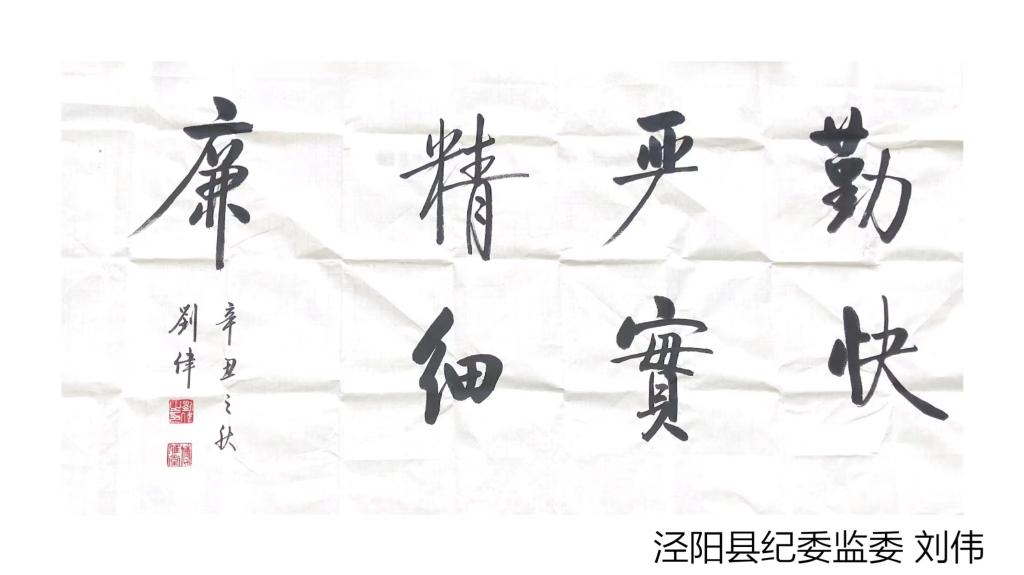 勤快
严實
精细
廉
辛丑之秋
劉偉
泾阳县纪委监委 刘伟